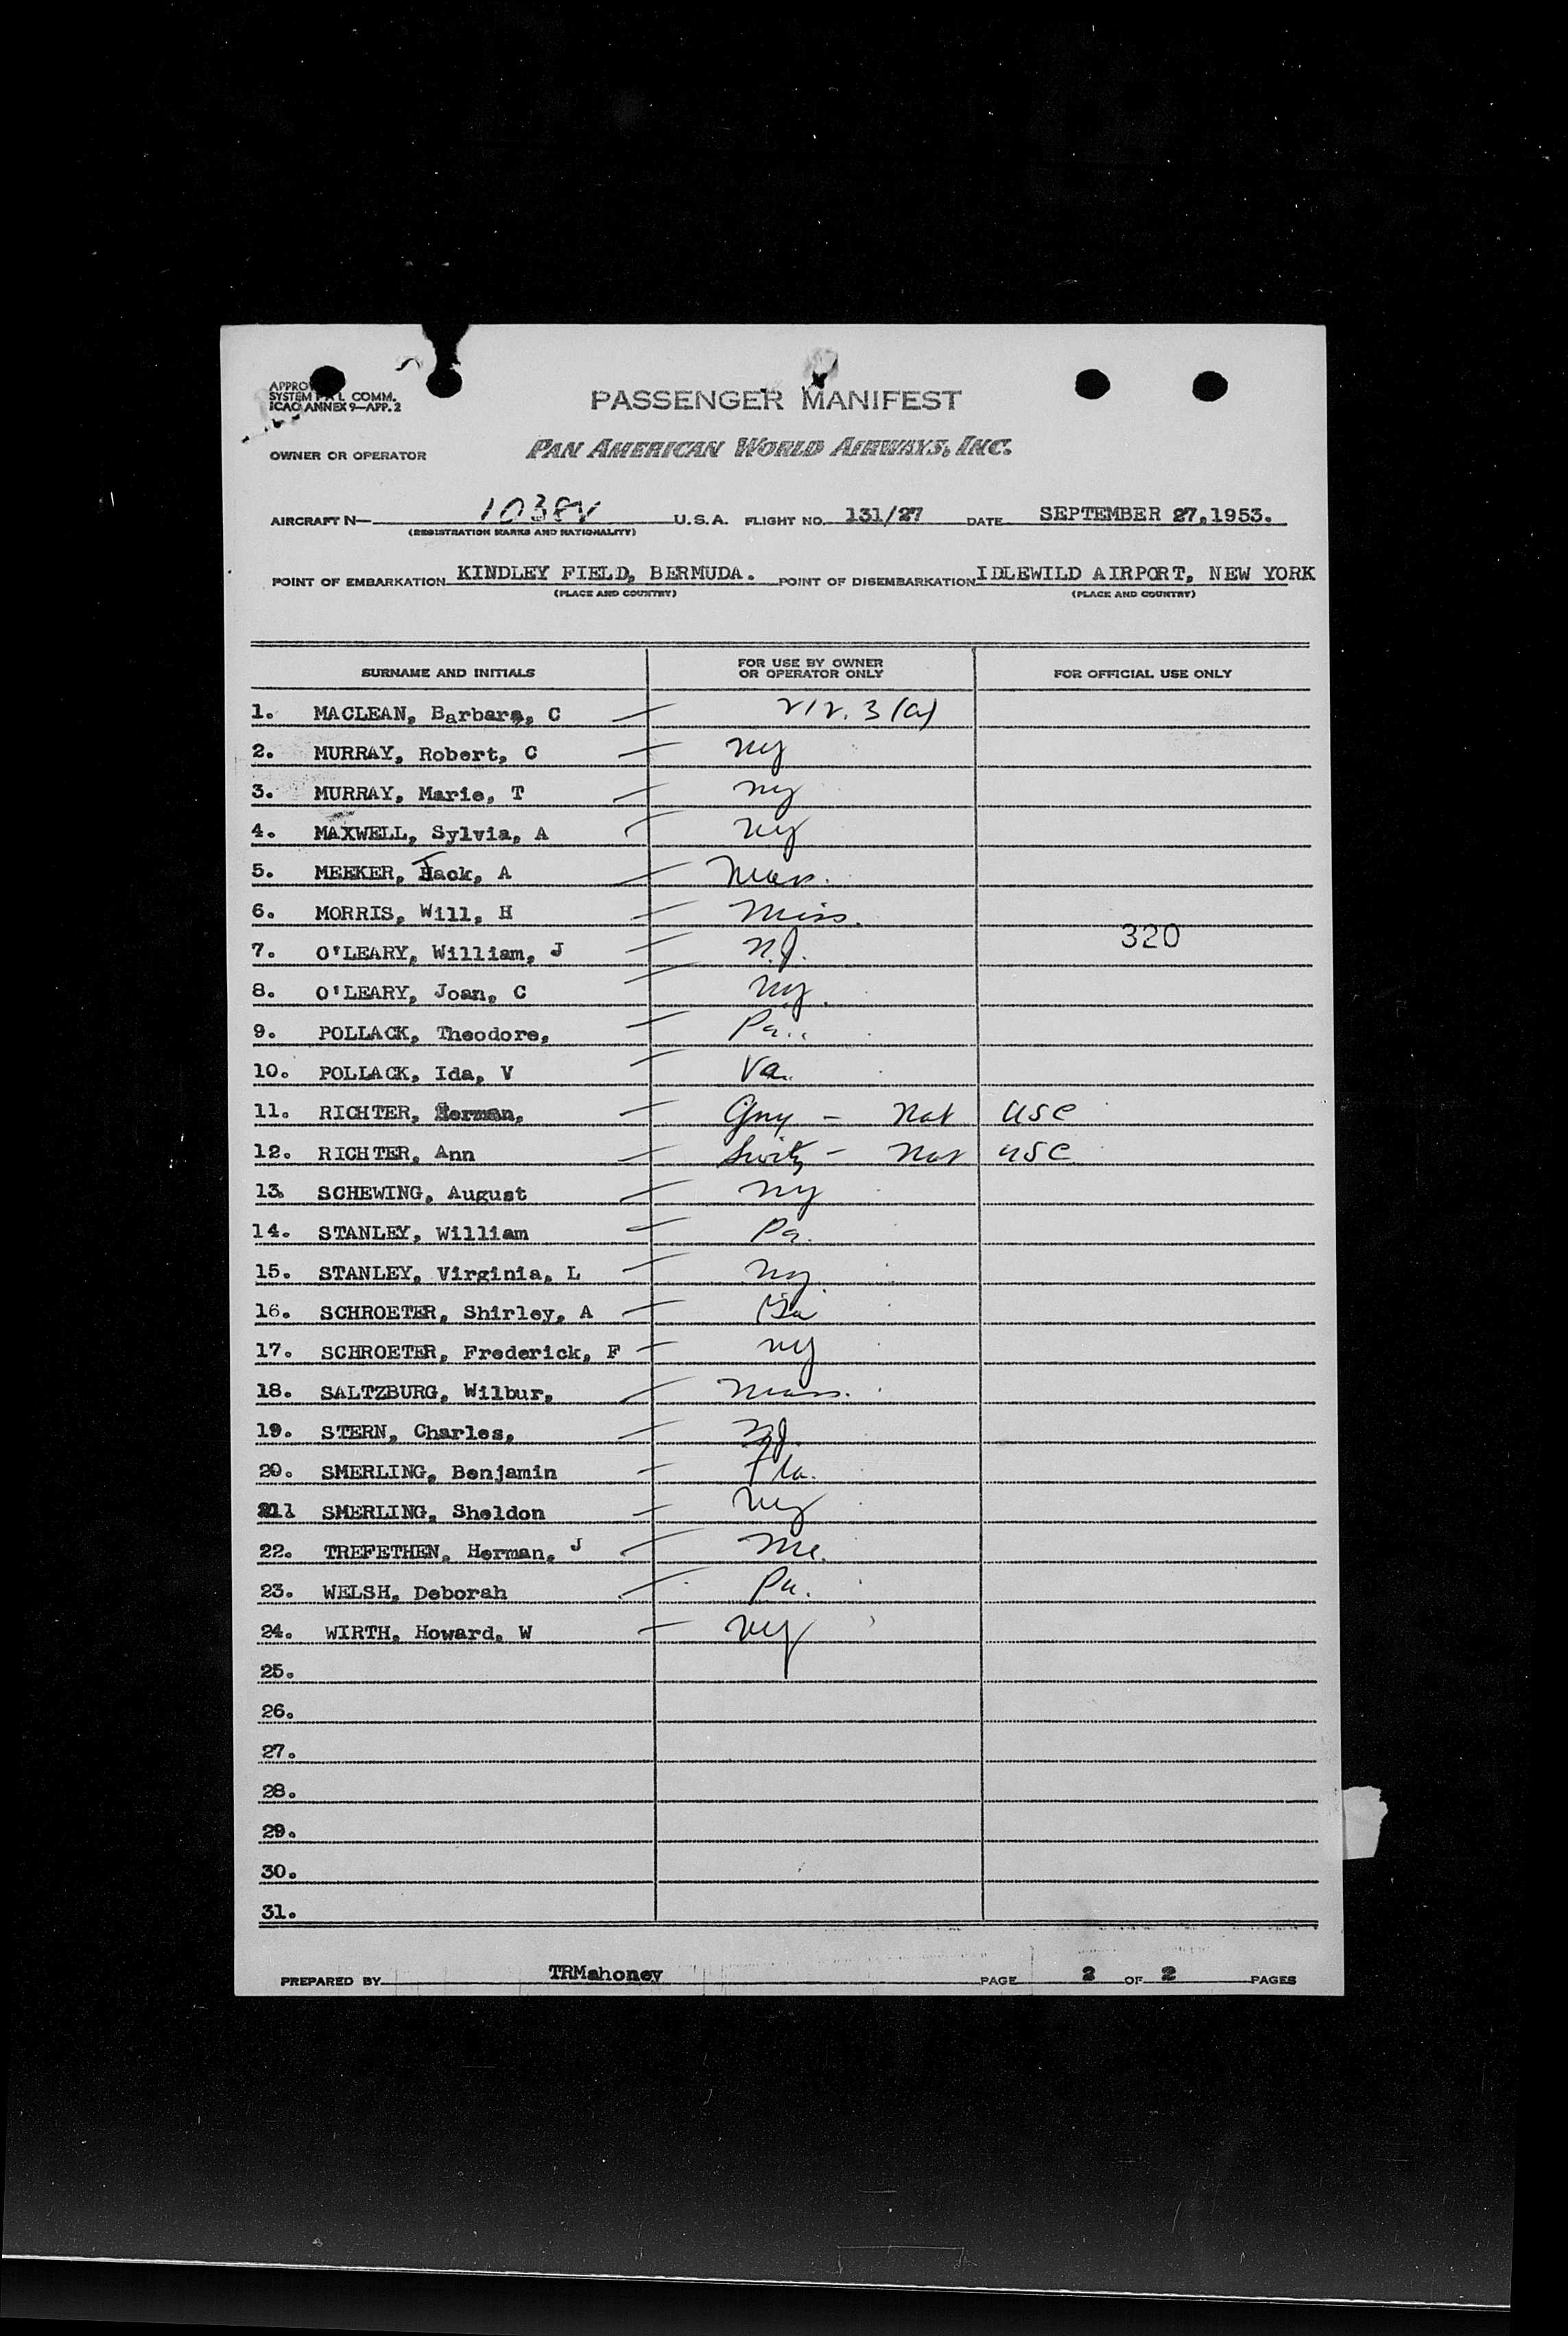 SYSTEM COMM.
ICAO ANNEX 9—APP. 2
PASSENGER MANIFEST
OWNER OR OPERATOR PAN AMERICAN WORLD AIRWAYS, INC.
AIRCRAFT N— 1038V U.S.A. FLIGHT NO. 131/27 DATE SEPTEMBER 27,1953.
(REGISTRATION MARKS AND NATIONALITY)
POINT OF EMBARKATION KINDLEY FIELD, BERMUDA. POINT OF DISEMBARKATION IDLEWILD AIRPORT, NEW YORK
(PLACE AND COUNTRY) (PLACE AND COUNTRY)
SURNAME AND INITIALS FOR USE BY OWNER OR OPERATOR ONLY FOR OFFICIAL USE ONLY
1. MACLEAN, Barbara, C 212.3(a)
2. MURRAY, Robert, C NY
3. MURRAY, Marie, T NY
4. MAXWELL, Sylvia, A NY
5. MEEKER, Jack, A Mass.
6. MORRIS, Will, H Miss.
320
7. O'LEARY, William, J N.J.
8. O'LEARY, Joan, C NY.
9. POLLACK, Theodore, Pa.
10. POLLACK, Ida, V Va.
11. RICHTER, Herman, Gny — Nat USC
12. RICHTER, Ann Switz — Nat USC
13. SCHEWING, August NY
14. STANLEY, William Pa.
15. STANLEY, Virginia, L NY
16. SCHROETER, Shirley, A
17. SCHROETER, Frederick, F NY
18. SALTZBURG, Wilbur, Mass.
19. STERN, Charles, NJ.
20. SMERLING, Benjamin Fla.
21. SMERLING, Sheldon NY
22. TREFETHEN, Herman, J Me.
23. WELSH, Deborah Pa.
24. WIRTH, Howard, W NY
25.
26.
27.
28.
29.
30.
31.
PREPARED BY TRMahoney PAGE 2 OF 2 PAGES